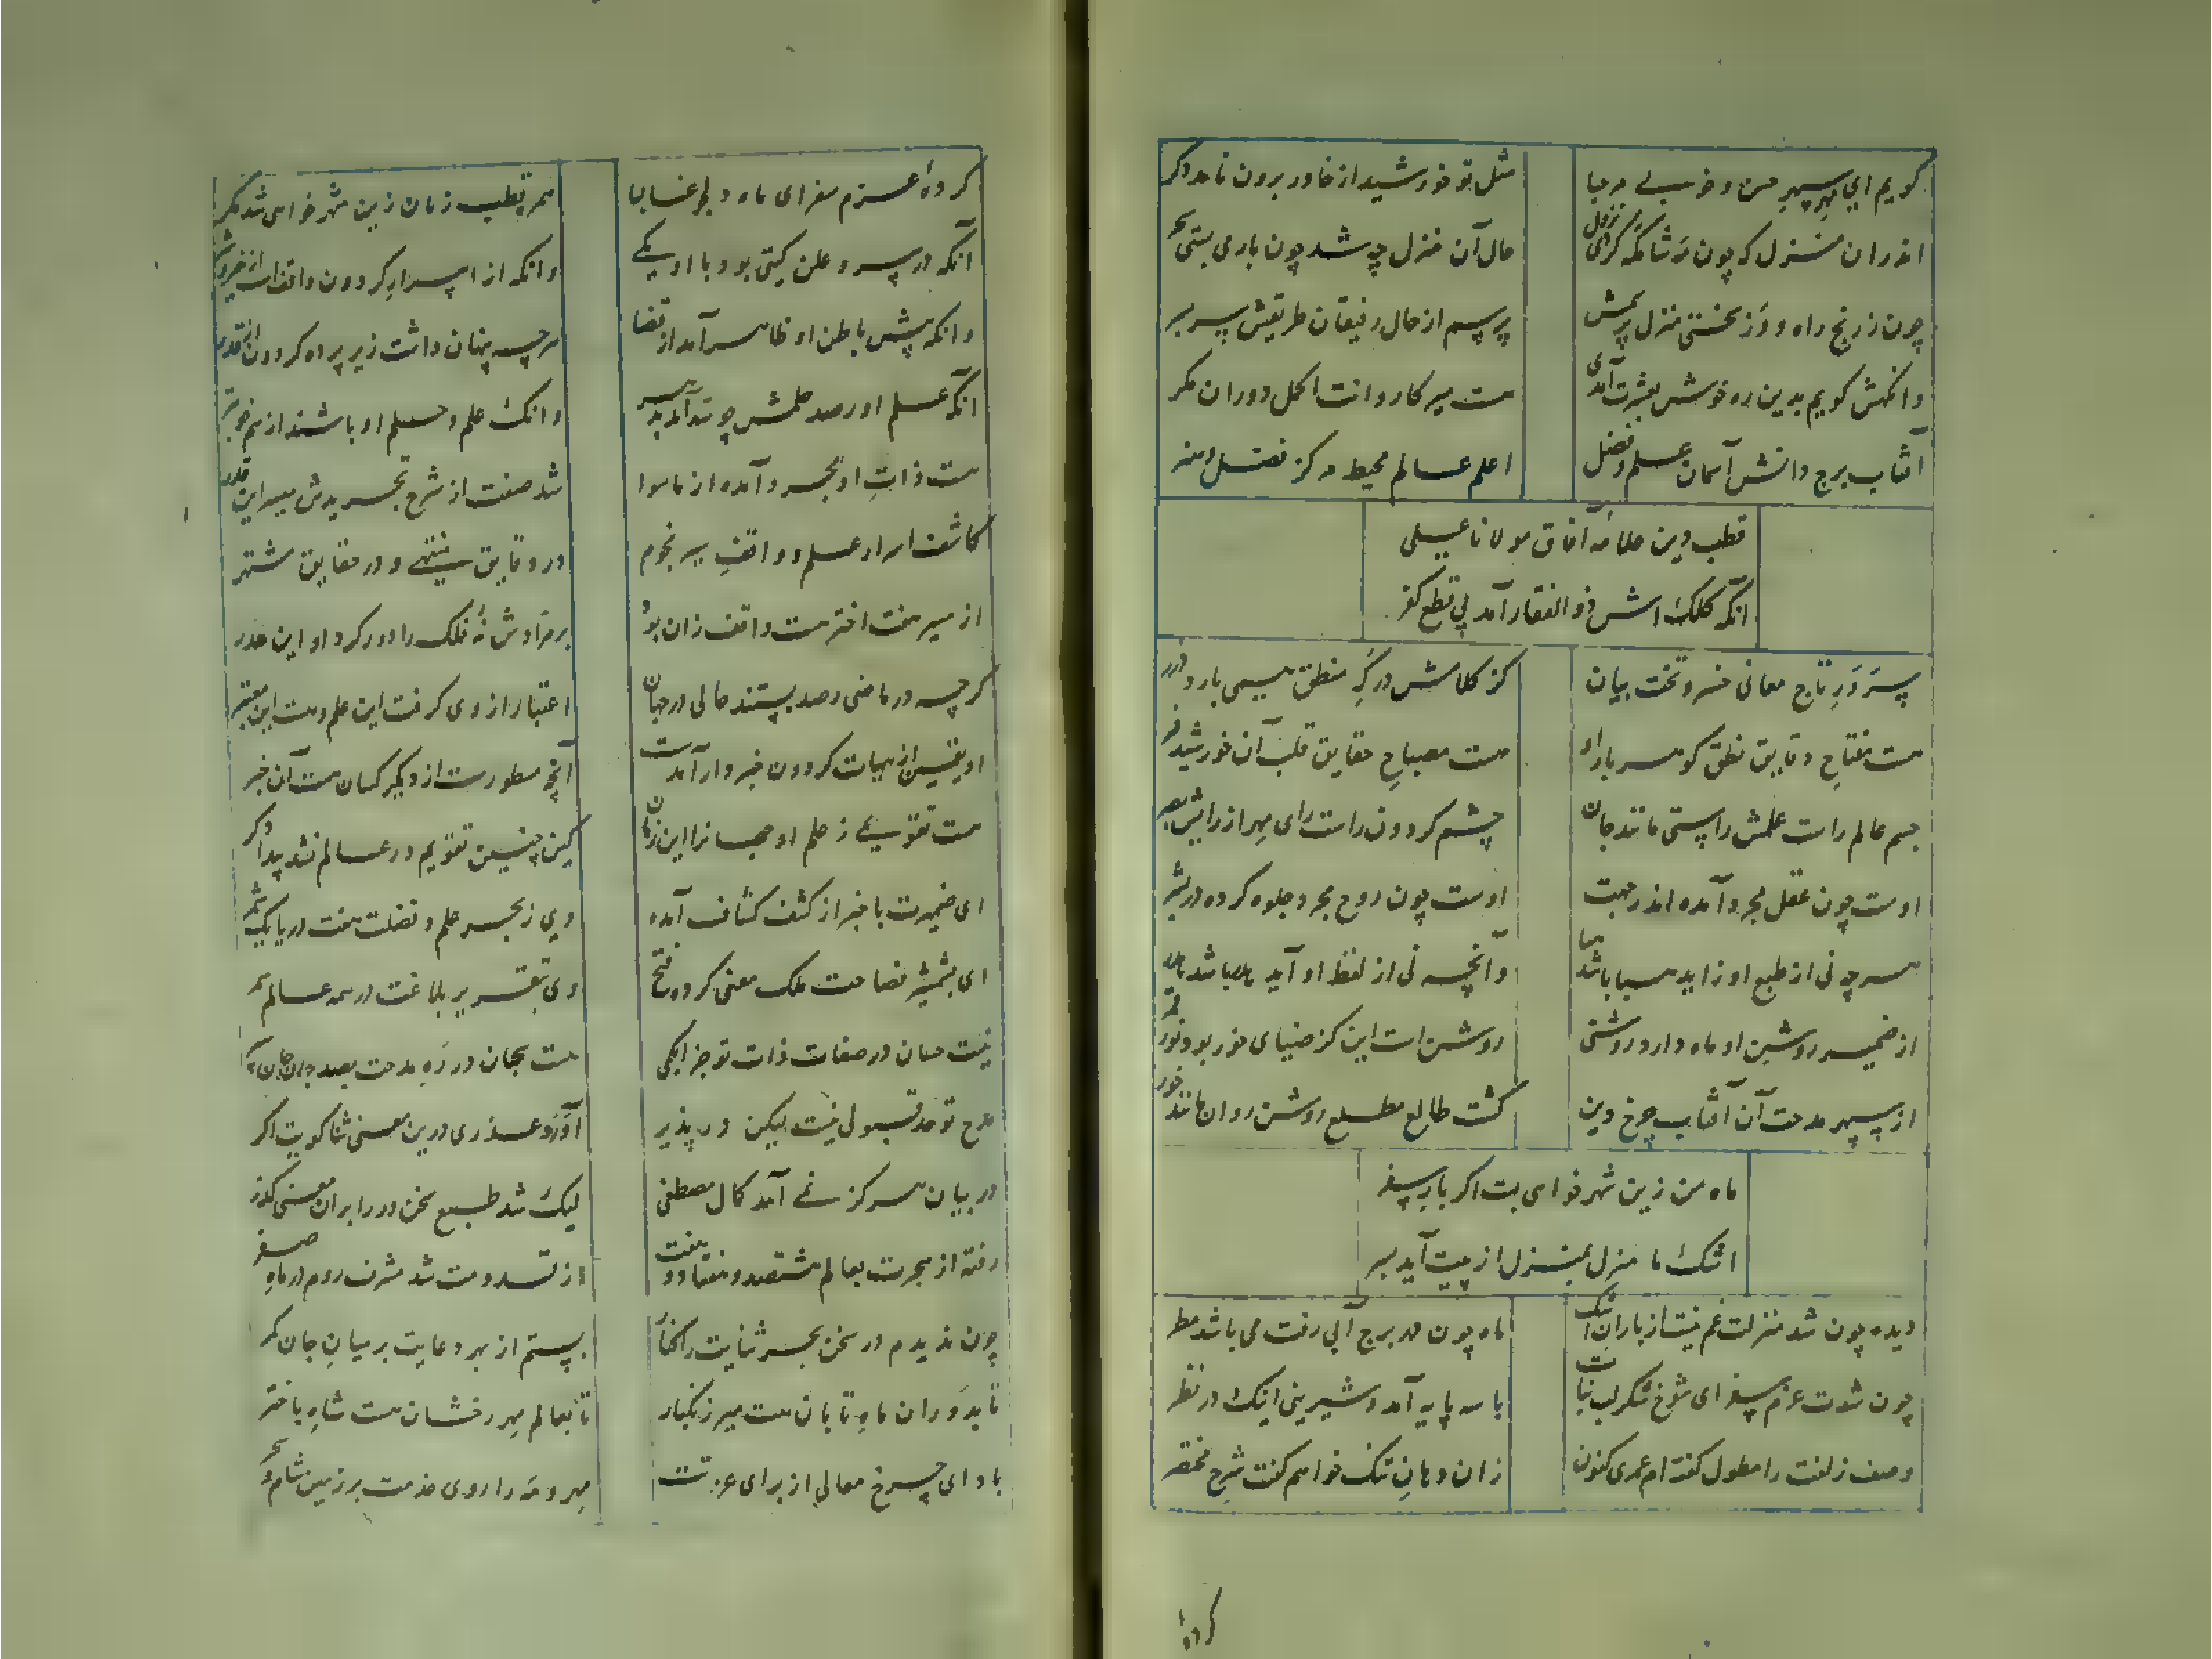 کویم ای مهر سپهر حسن و خوبی مرحبا
مثل تو خورشید از خاور برون نامد دکر
اندران منزل که چون مه شامکه کردی نزول
حال آن منزل چه شد چون بار می بستی سحر
چون ز رنج راه و وز سختی منزل پرسمش
پرسم از حال رفیقان طریقش سر بسر
وانکهش کویم بدین ره خوش بعشرت آمدی
هست میر کاروانت اکمل دوران مکر
آفتاب برج دانش آسمان علم و فضل
اعلم عالم محیط مرکز فضل و هنر
قطب دین علامه آفاق مولانا عیسی
آنکه کلک اش ذو الفقار آمد پی قطع کفر
سرور تاج معانی خسرو تخت بیان
کز کلامش در که منطق همی بارد درر
هست مفتاح دقایق نطق کوهر بار او
هست مصباح حقایق قلب آن خورشید فر
جسم عالم راست علمش راستی مانند جان
چشم کردون راست رای مهر از رایش بصر
اوست چون عقل مجرد آمده اندر جهت
اوست چون روح مجرد جلوه کرده در بشر
هر چه نی از طبع او زاید هبا باشد هبا
وآنچه نی از لفظ او آید هدر باشد هدر
از ضمیر روشن او ماه دارد روشنی
روشن است این کز ضیای خور بود نور قمر
از سپهر مدحت آن آفتاب چرخ دین
کشت طالع مطلع روشن روان مانند خور
ماه من زین شهر خواهی بست اکر بار سفر
اشک ما منزل بمنزل از پیت آید بسر
دیده چون شد منزلت غم نیست از باران اشک
ماه چون در برج آبی رفت می باشد مطر
چون شدت عزم سفر ای شوخ شکر لب نبات
با سه پایه آمد و شیرینی اینک در نظر
وصف زلفت را مطول کفته ام عمری کنون
زان دهان تنک خواهم کفت شرح مختصر
کرده
کرده عزم سفر ای ماه دلبر غالبا
همره قطب زمان زین شهر خواهی شد مکر
آنکه در سر و علن کیتی بود با او یکی
وانکه از اسرار کردون واقف است از خیر و شر
وانکه پیش باطن او ظاهر آمد از قضا
هر چه پنهان داشت زیر پرده کردون از قدر
آنکه علم او رصد حلمش چو تد آمد پدر
وانک علم و حلم او باشند از هم خوبتر
هست ذات او مجرد آمده از ماسوا
شد صفت از شرح تجریدش میسر این قدر
کاشف اسرار علم و واقف سیر نجوم
در دقایق منتهی و در حقایق مشتهر
از مسیر هفت اختر هست واقف زان بود
بر مرادش نه فلک را دور کرد او این قدر
کر چه در ماضی رصد بستند حالی در جهان
اعتبار از وی کرفت این علم و هست این معتبر
او یقین از هیات کردون خبردار آمدست
آنچه مسطورست از دیکر کسان هست آن خبر
هست تقویمی ز علم او جهانرا این زمان
کین چنین تقویم در عالم نشد پیدا دکر
ای ضمیرت با خبر از کشف کشاف آمده
وی ز بحر علم و فضلت هفت دریا یک شمر
ای بشمشیر فصاحت ملک معنی کرده فتح
وی بتقریر بلاغت در همه عالم سمر
نیست حسان در صفات ذات تو جز ابکمی
هست سحبان در ره مدحت بصد جان
مدح تو حد قبولی نیست لیکن در پذیر
آورد عذری درین معنی ثنا کویت اکر
در بیان هر کز نمی آمد کمال مصطفی
لیک شد طبع سخن ور را بران معنی کذر
رفته از هجرت بعالم هشتصد و هفتاد و هفت
از قدومت شد مشرف روم در ماه صفر
چون ندیدم در سخن بحر ثنایت را کنار
بستم از بهر دعایت بر میان جان کمر
تا بدوران ماه تابان هست میر زنکبار
تا بعالم مهر رخشان هست شاه باختر
باد ای چرخ معالی از برای عزتت
مهر و مه را روی خدمت بر زمین شام و سحر